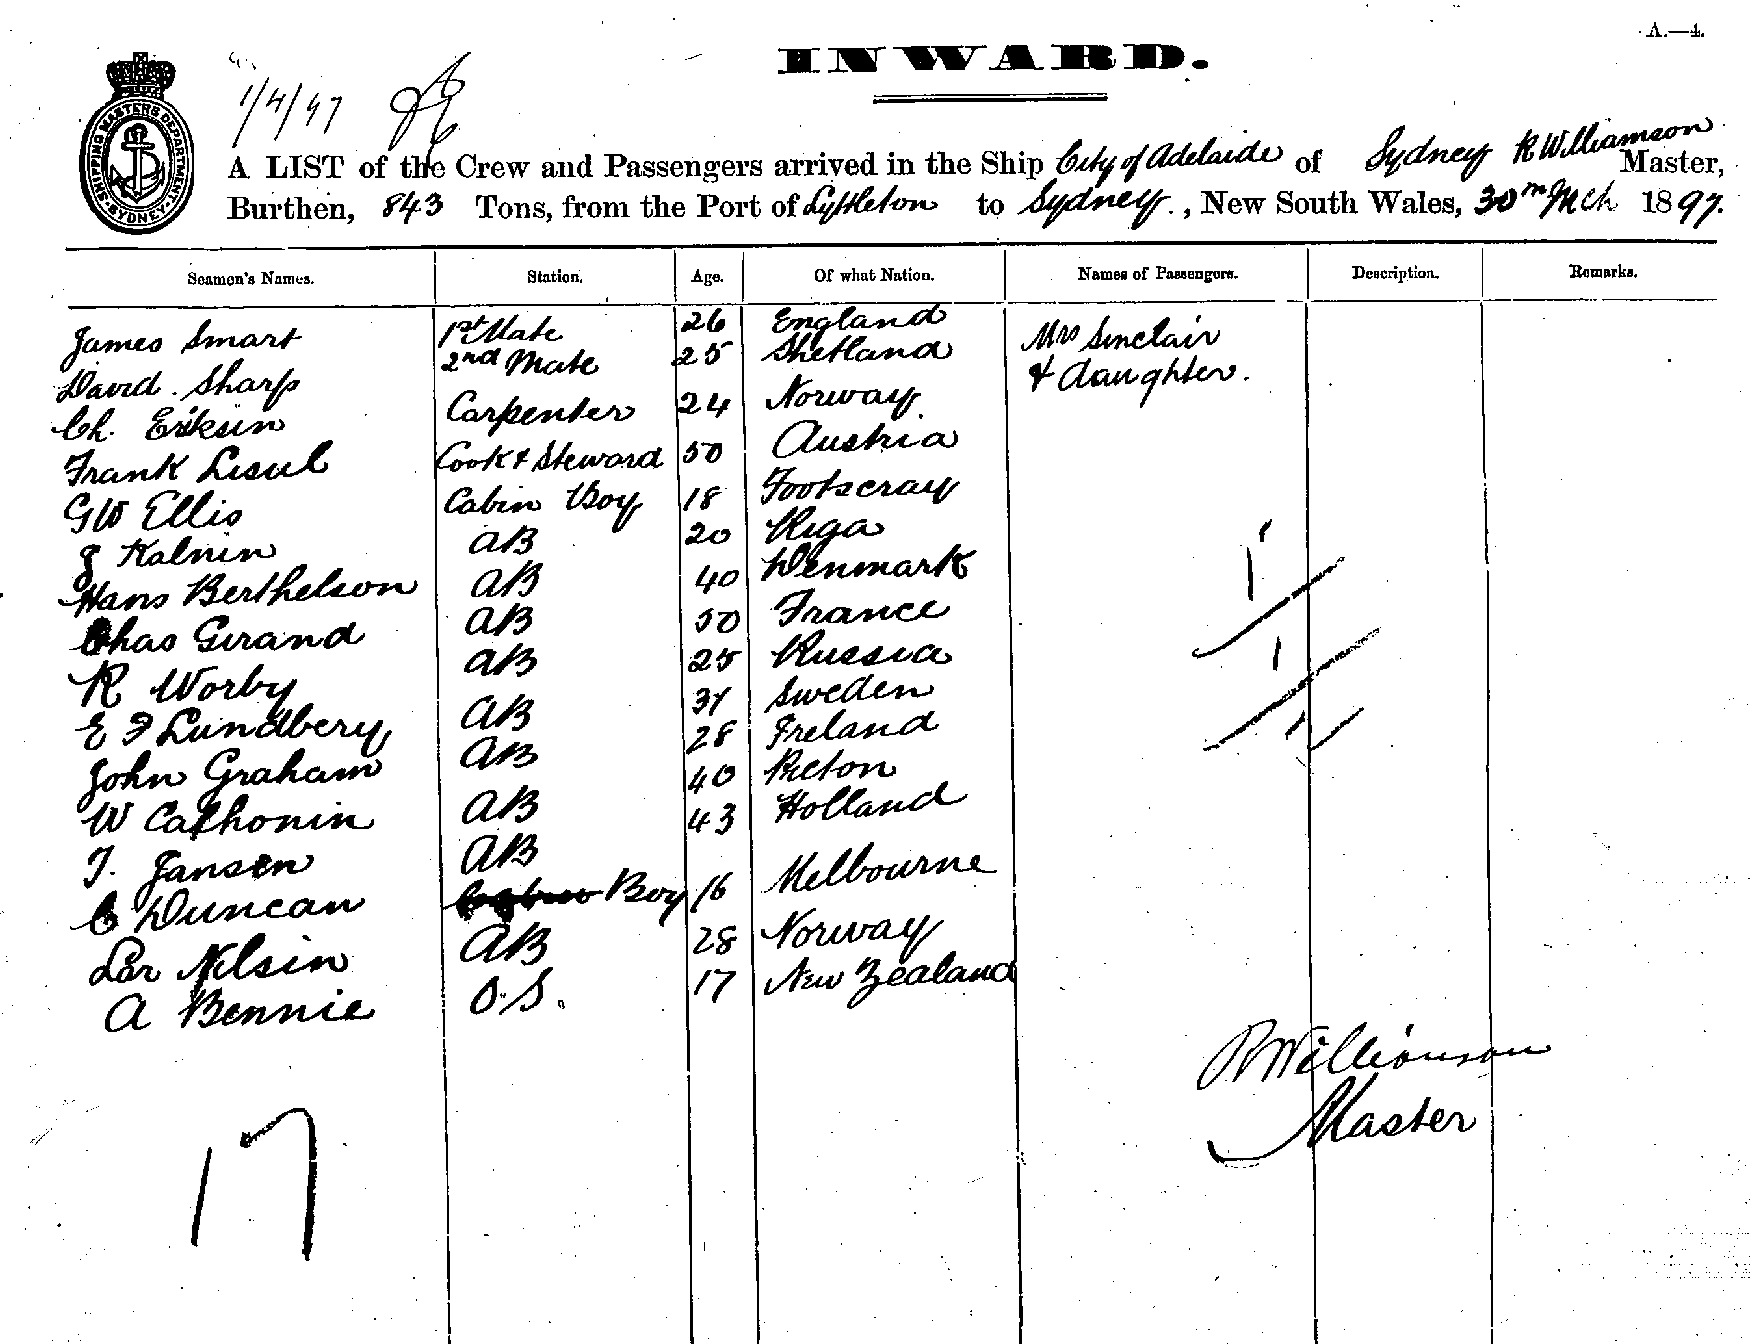 A.—4.
INWARD.
1/4/97
SHIPPING MASTERS DEPARTMENT SYDNEY
A LIST of the Crew and Passengers arrived in the Ship City of Adelaide of Sydney R Williamson Master,
Burthen, 843 Tons, from the Port of Lyttleton to Sydney., New South Wales, 30th Mch 1897.
Seamen's Names. Station. Age. Of what Nation. Names of Passengers. Description. Remarks.
James Smart 1st Mate 26 England Mrs Sinclair
David Sharp 2nd Mate 25 Shetland & daughter.
Ch. Eriksin Carpenter 24 Norway.
Frank Lisul Cook & Steward 50 Austria
GW Ellis Cabin Boy 18 Footscray
J Kalnin AB 20 Riga
Hans Berthelson AB 40 Denmark
Chas Girand AB 50 France
R Worby AB 25 Russia
E F Lundbery AB 31 Sweden
John Graham AB 28 Ireland
W Calhonin AB 40 Picton
T. Jansen AB 43 Holland
C Duncan Boy 16 Melbourne
Lar Nilsin AB 28 Norway
A Bennie O.S. 17 New Zealand
R Williamson
Master
17